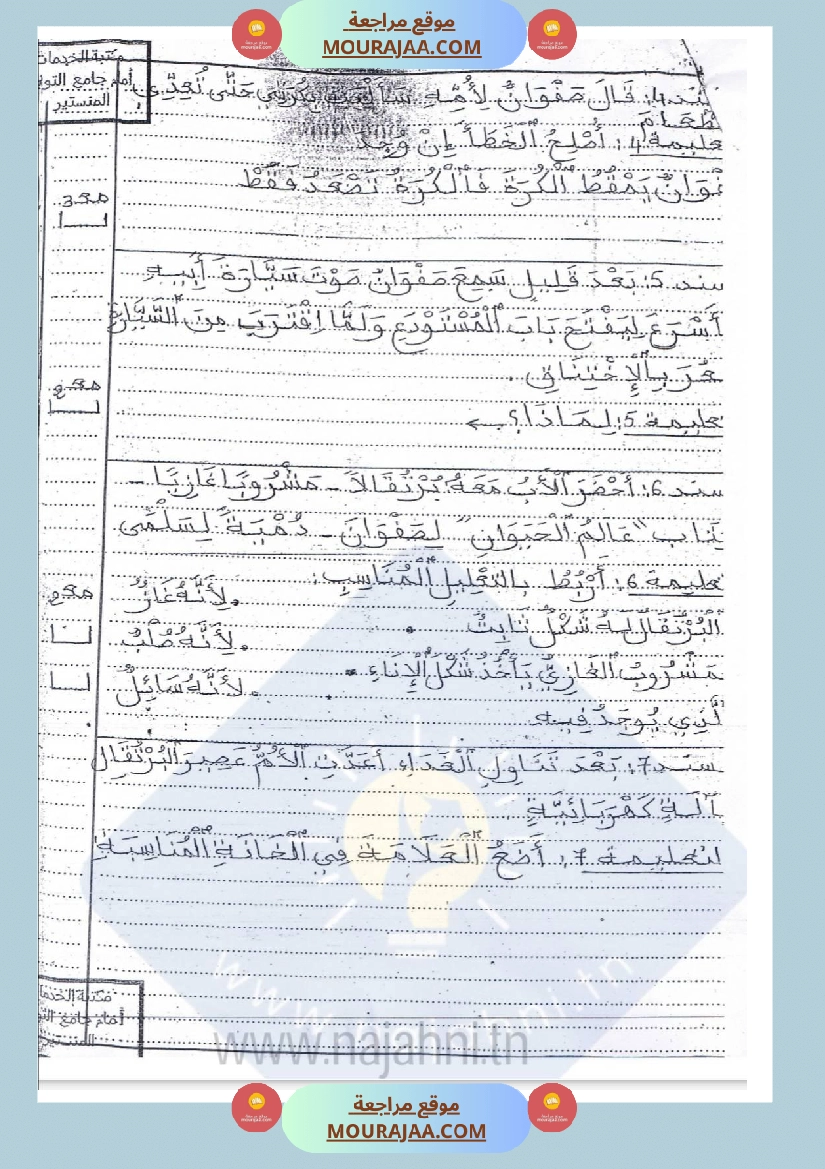 موقع مراجعة
MOURAJAA.COM
مكتبة الخدمات
أمام جامع التو
المنستير
سند 4: قَالَ صَفْوَانٌ لِأُمِّهِ سَأَلْعَبُ بِكُرَتِي حَتَّى تُعِدِّي
الطَّعَامَ
تعليمة 4: أُصْلِحُ الْخَطَأَ إِنْ وُجِدَ
صَفْوَانٌ يُسْقِطُ الْكُرَةَ فَالْكُرَةُ تَصْعَدُ فَقَطْ
معـ3
سند 5: بَعْدَ قَلِيلٍ سَمِعَ صَفْوَانُ صَوْتَ سَيَّارَةِ أَبِيهِ
أَسْرَعَ لِيَفْتَحَ بَابَ الْمُسْتَوْدَعِ وَلَمَّا اقْتَرَبَ مِنَ السَّيَّارَةِ
شعُرَ بِالْإِخْتِنَاقِ.
تعليمة 5: لِمَاذَا؟ ←
سند 6: أَحْضَرَ الْأَبُ مَعَهُ بُرْتُقَالًا - مَشْرُوبًا غَازِيًّا -
كِتَاب "عَالَمُ الْحَيَوَانِ" لِصَفْوَانَ - دُمْيَةً لِسَلْمَى
تعليمة 6: أَرْبُطُ بِالتَّعْلِيلِ الْمُنَاسِبِ:
. لِأَنَّهُ غَازٌ
الْبُرْتُقَالُ لَهُ شَكْلٌ ثَابِتٌ .
. لِأَنَّهُ صُلْبٌ
مَشْرُوبُ الْغَازِيُّ يَأْخُذُ شَكْلَ الْإِنَاءِ .
. لِأَنَّهُ سَائِلٌ
الَّذِي يُوجَدُ فِيهِ
سند 7: بَعْدَ تَنَاوُلِ الْغَدَاءِ أَعَدَّتِ الْأُمُّ عَصِيرَ الْبُرْتُقَالِ
بِآلَةٍ كَهْرَبَائِيَّةٍ
التعليمة 7: أَضَعُ الْعَلَامَةَ فِي الْخَانَةِ الْمُنَاسِبَةِ
www.najahni.tn
www.najahni.tn
مكتبة الخدما
أمام جامع التو
المنستير
موقع مراجعة
MOURAJAA.COM